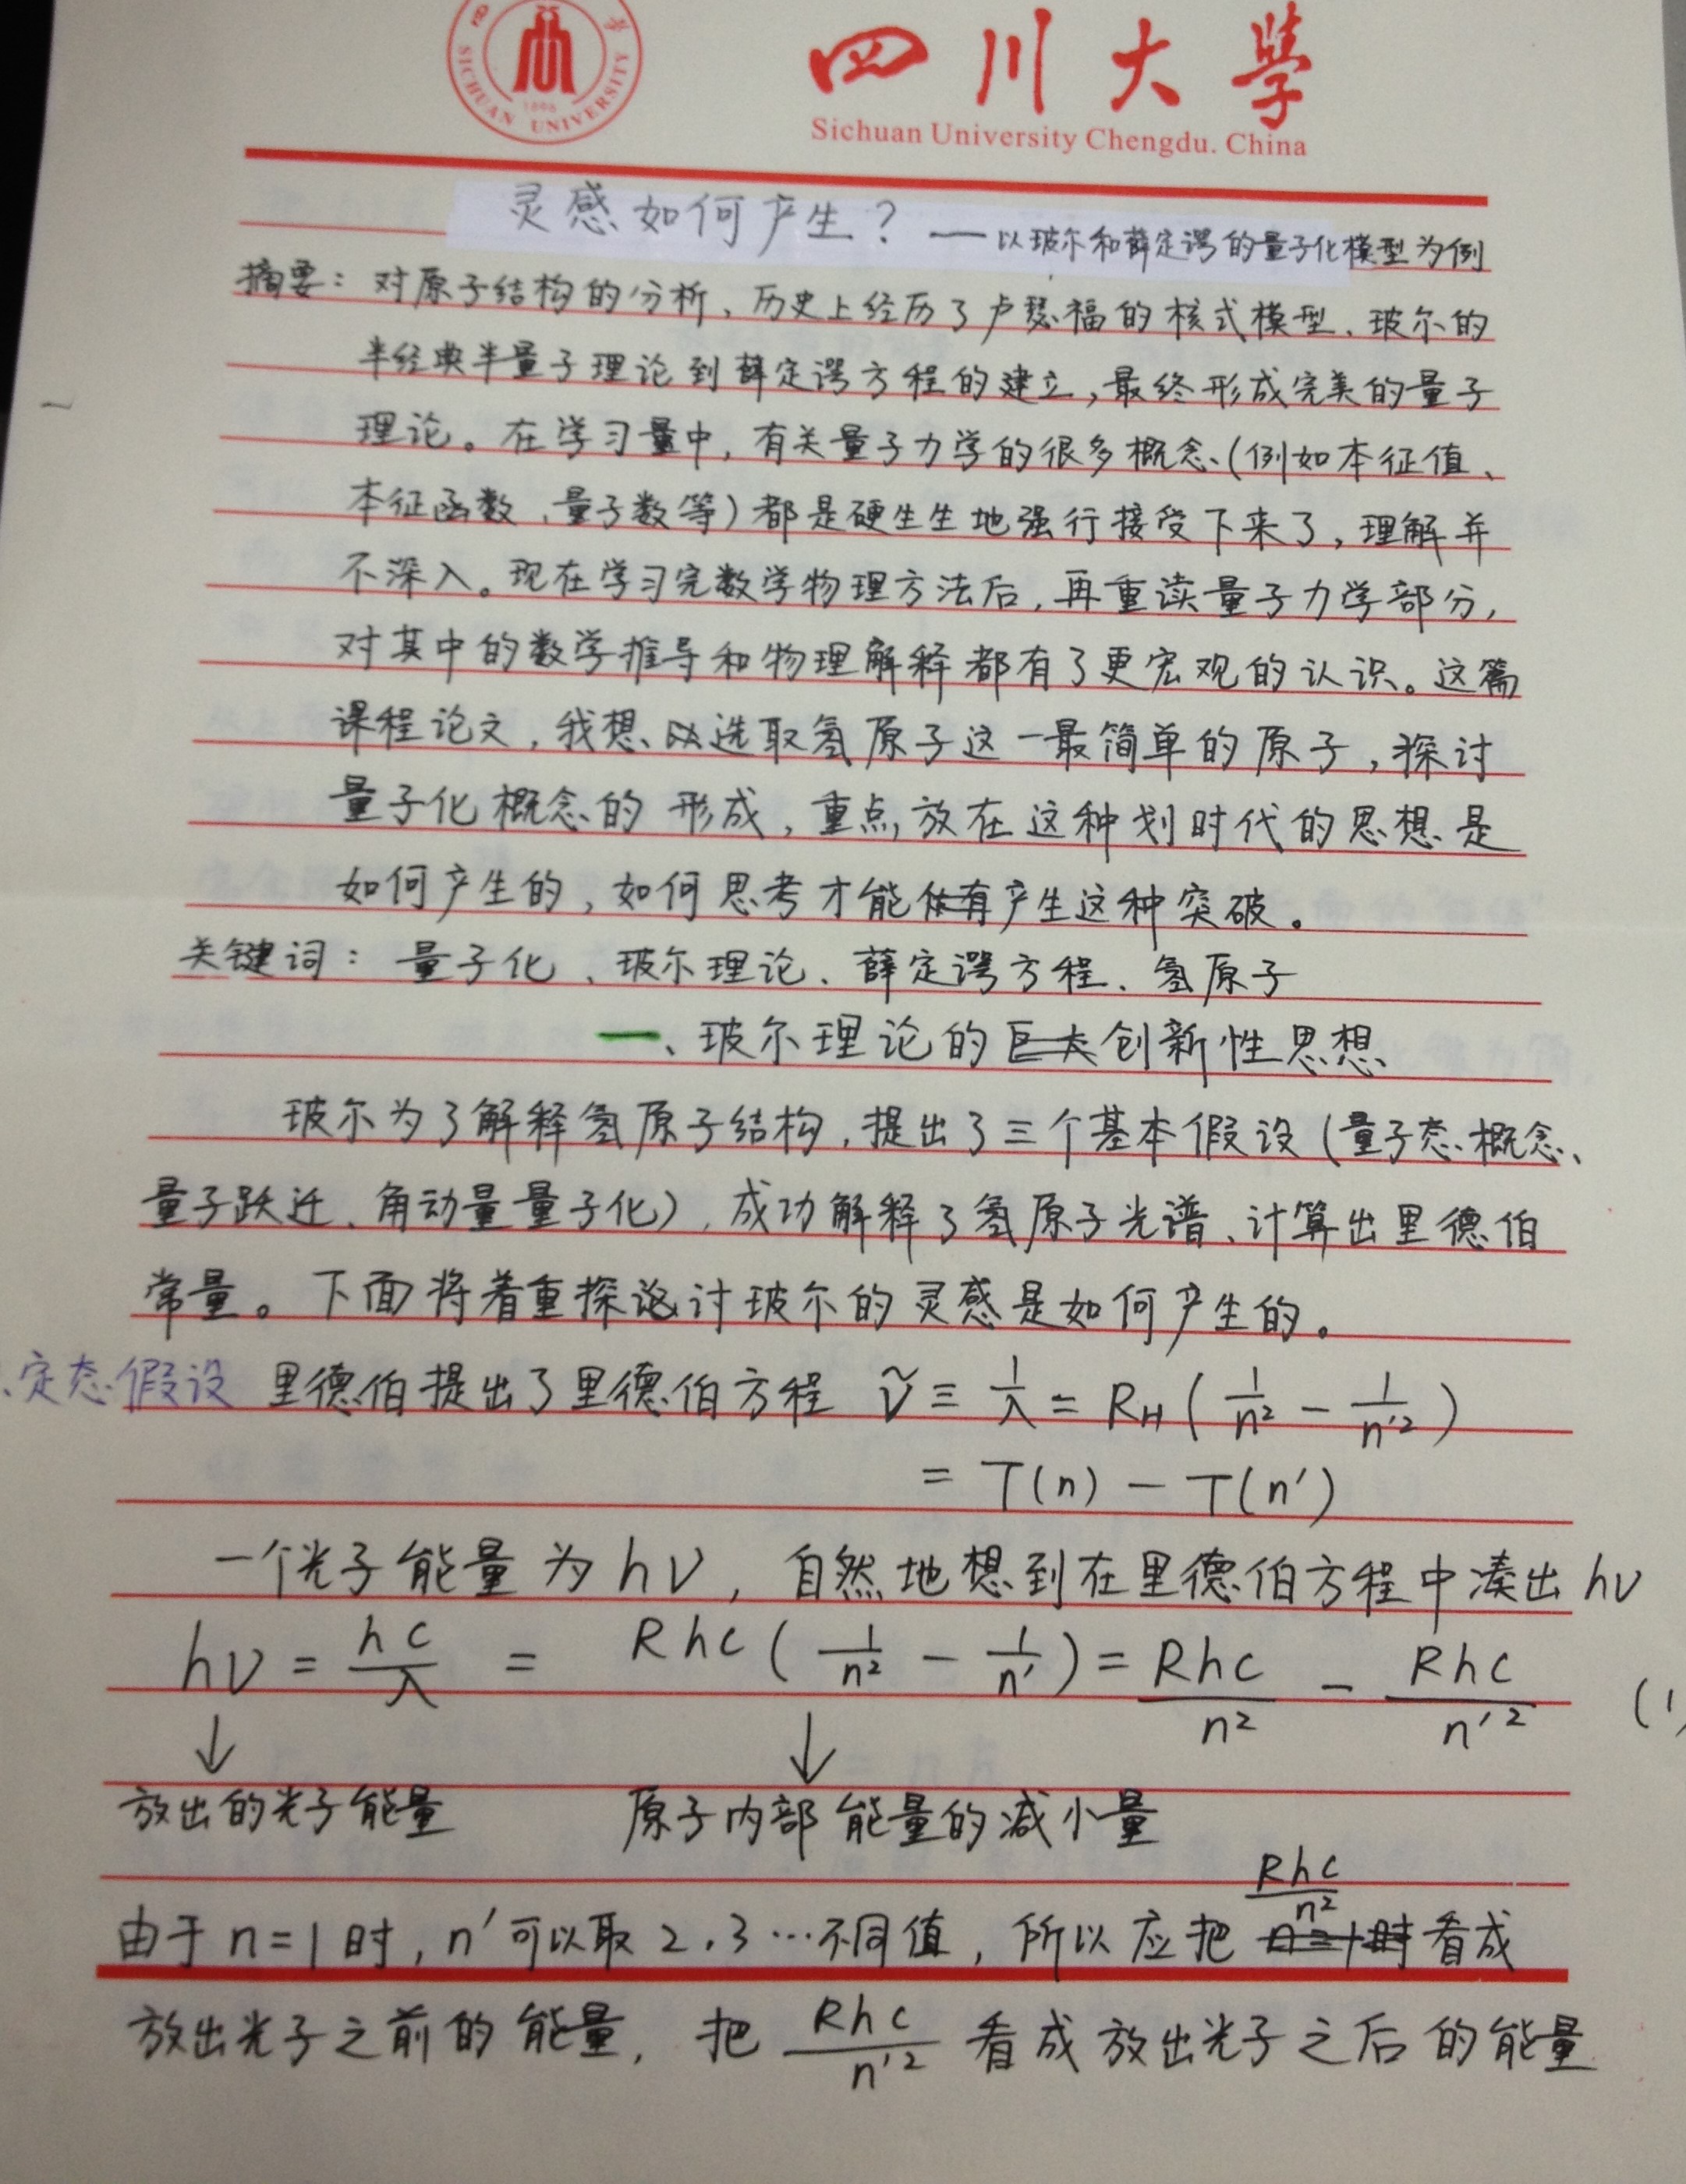 SICHUAN UNIVERSITY
1896
四川大学
Sichuan University Chengdu. China
灵感如何产生？——以玻尔和薛定谔的量子化模型为例
摘要：对原子结构的分析、历史上经历了卢瑟福的核式模型、玻尔的
半经典半量子理论到薛定谔方程的建立，最终形成完美的量子
理论。在学习量中，有关量子力学的很多概念（例如本征值、
本征函数、量子数等）都是硬生生地强行接受下来了，理解并
不深入。现在学习完数学物理方法后，再重读量子力学部分，
对其中的数学推导和物理解释都有了更宏观的认识。这篇
课程论文，我想以选取氢原子这一最简单的原子，探讨
量子化概念的形成，重点放在这种划时代的思想是
如何产生的，如何思考才能产生这种突破。
关键词：量子化、玻尔理论、薛定谔方程、氢原子
一、玻尔理论的巨大创新性思想
玻尔为了解释氢原子结构，提出了三个基本假设（量子态概念、
量子跃迁、角动量量子化），成功解释了氢原子光谱、计算出里德伯
常量。下面将着重探讨玻尔的灵感是如何产生的。
、定态假设 里德伯提出了里德伯方程 ν̃ ≡ 1/λ = R_H ( 1/n² − 1/n'² )
= T(n) − T(n')
一个光子能量为hν，自然地想到在里德伯方程中凑出hν
hν = hc/λ = Rhc ( 1/n² − 1/n' ) = Rhc/n² − Rhc/n'² (1)
↓ ↓
放出的光子能量 原子内部能量的减小量
由于n=1时，n'可以取2,3…不同值，所以应把 Rhc/n² 看成
放出光子之前的能量，把 Rhc/n'² 看成放出光子之后的能量